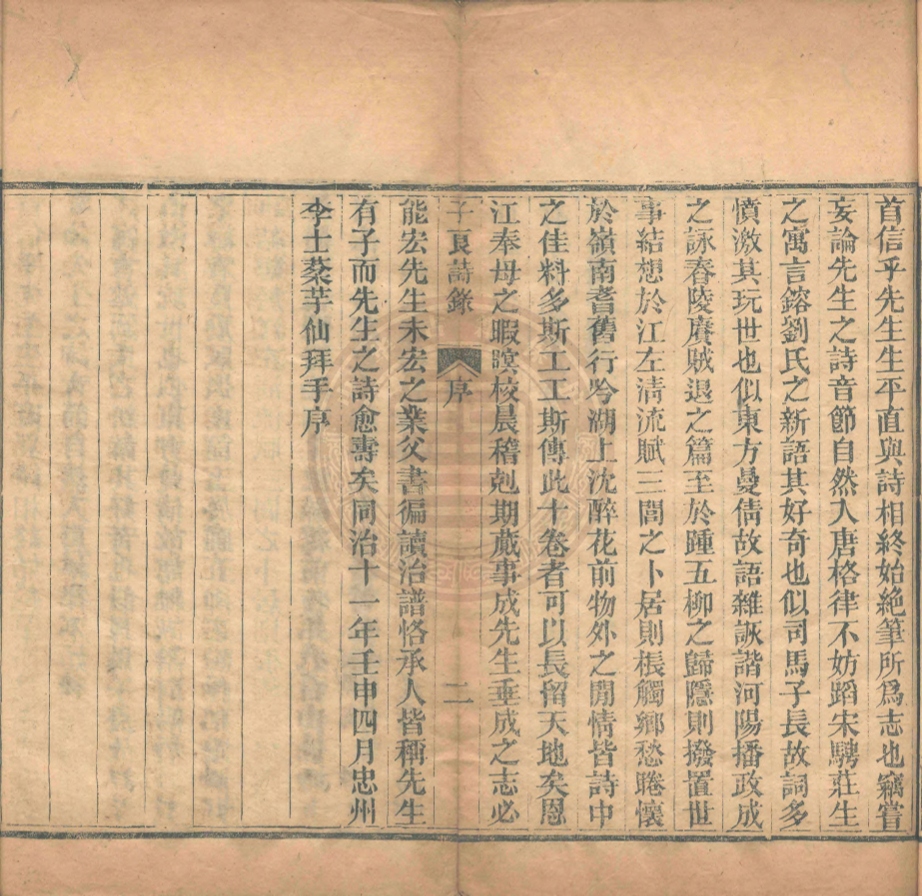 首信乎先生生平直與詩相終始絶筆所爲志也竊嘗
妄論先生之詩音節自然入唐格律不妨蹈宋騁莊生
之寓言鎔劉氏之新語其好奇也似司馬子長故詞多
憤激其玩世也似東方曼倩故語雜詼諧河陽播政成
之詠舂陵賡賊退之篇至於踵五柳之歸隱則撥置世
事結想於江左清流賦三閭之卜居則棖觸鄉愁睠懷
於嶺南耆舊行吟湖上沈醉花前物外之閒情皆詩中
之佳料多斯工工斯傳此十卷者可以長留天地矣恩
江奉母之暇暝校晨稽剋期蕆事成先生垂成之志必
子良詩錄 序 二
能宏先生未宏之業父書徧讀治譜恪承人皆稱先生
有子而先生之詩愈壽矣同治十一年壬申四月忠州
李士棻芋仙拜手序